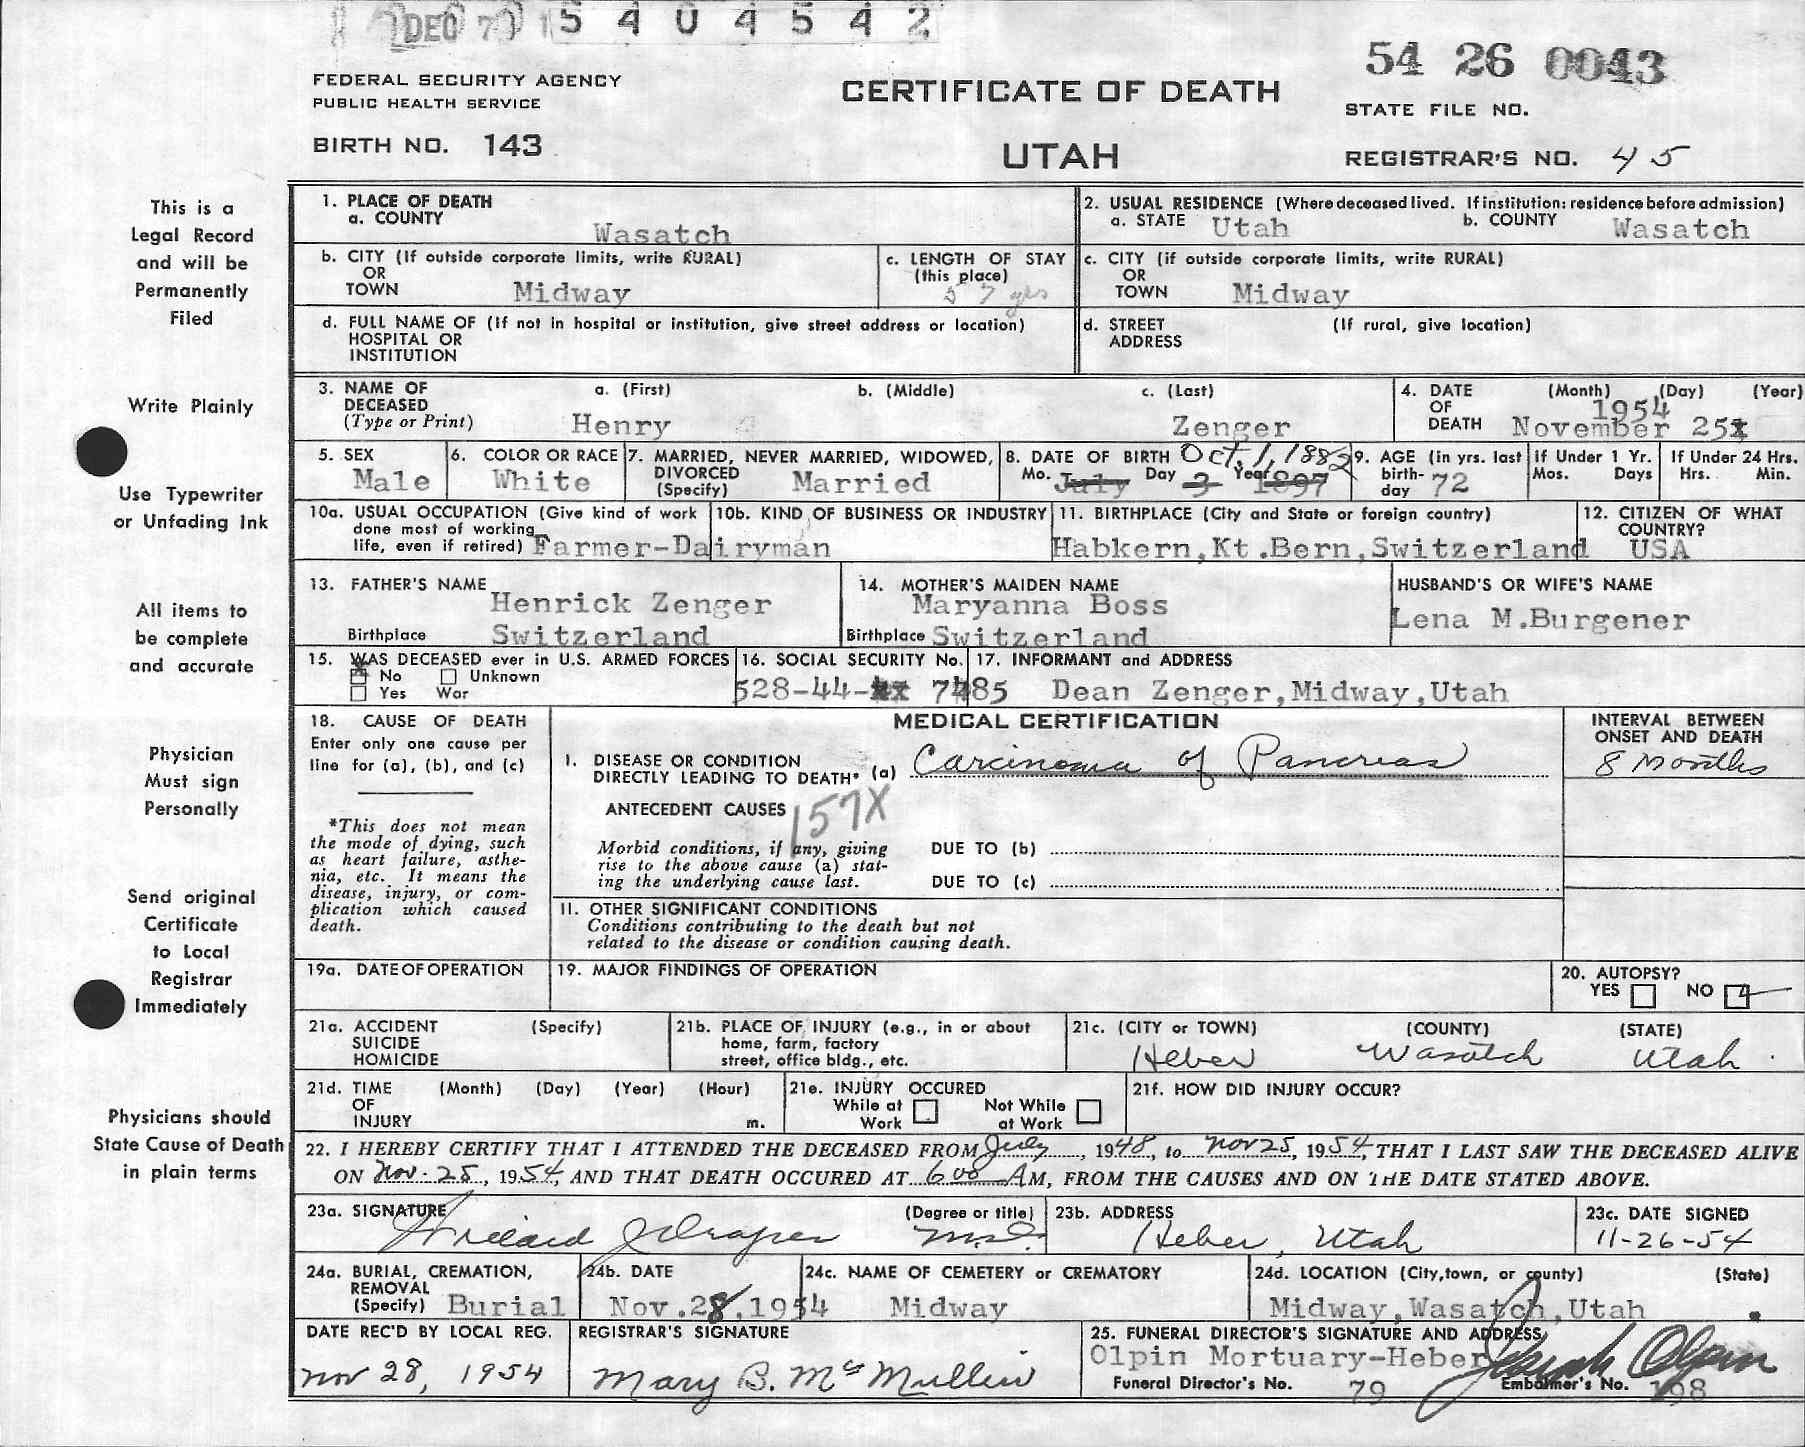 DEC 5404542
54 26 0043
FEDERAL SECURITY AGENCY
PUBLIC HEALTH SERVICE
CERTIFICATE OF DEATH
STATE FILE NO.
BIRTH NO. 143
UTAH
REGISTRAR'S NO. 45
This is a
Legal Record
and will be
Permanently
Filed
Write Plainly
Use Typewriter
or Unfading Ink
All items to
be complete
and accurate
Physician
Must sign
Personally
Send original
Certificate
to Local
Registrar
Immediately
Physicians should
State Cause of Death
in plain terms
1. PLACE OF DEATH
a. COUNTY
Wasatch
2. USUAL RESIDENCE (Where deceased lived. If institution: residence before admission)
a. STATE Utah b. COUNTY Wasatch
b. CITY (If outside corporate limits, write RURAL)
OR
TOWN Midway
c. LENGTH OF STAY
(this place)
57 yrs
c. CITY (if outside corporate limits, write RURAL)
OR
TOWN Midway
d. FULL NAME OF (If not in hospital or institution, give street address or location)
HOSPITAL OR
INSTITUTION
d. STREET (If rural, give location)
ADDRESS
3. NAME OF a. (First) b. (Middle) c. (Last)
DECEASED
(Type or Print) Henry Zenger
4. DATE (Month) (Day) (Year)
OF 1954
DEATH November 25
5. SEX
Male
6. COLOR OR RACE
White
7. MARRIED, NEVER MARRIED, WIDOWED,
DIVORCED
(Specify) Married
8. DATE OF BIRTH Oct. 1, 1882
Mo. July Day 3 Year 1897
9. AGE (in yrs. last
birth-
day 72
If Under 1 Yr.
Mos. Days
If Under 24 Hrs.
Hrs. Min.
10a. USUAL OCCUPATION (Give kind of work
done most of working
life, even if retired) Farmer-Dairyman
10b. KIND OF BUSINESS OR INDUSTRY
11. BIRTHPLACE (City and State or foreign country)
Habkern,Kt.Bern,Switzerland
12. CITIZEN OF WHAT
COUNTRY?
USA
13. FATHER'S NAME
Henrick Zenger
Birthplace Switzerland
14. MOTHER'S MAIDEN NAME
Maryanna Boss
Birthplace Switzerland
HUSBAND'S OR WIFE'S NAME
Lena M.Burgener
15. WAS DECEASED ever in U.S. ARMED FORCES
No Unknown
Yes War
16. SOCIAL SECURITY No.
528-44- 7485
17. INFORMANT and ADDRESS
Dean Zenger,Midway,Utah
18. CAUSE OF DEATH
Enter only one cause per
line for (a), (b), and (c)
*This does not mean
the mode of dying, such
as heart failure, asthe-
nia, etc. It means the
disease, injury, or com-
plication which caused
death.
MEDICAL CERTIFICATION
INTERVAL BETWEEN
ONSET AND DEATH
I. DISEASE OR CONDITION
DIRECTLY LEADING TO DEATH* (a) Carcinoma of Pancreas
8 Months
ANTECEDENT CAUSES 157X
Morbid conditions, if any, giving
rise to the above cause (a) stat-
ing the underlying cause last.
DUE TO (b)
DUE TO (c)
II. OTHER SIGNIFICANT CONDITIONS
Conditions contributing to the death but not
related to the disease or condition causing death.
19a. DATE OF OPERATION
19. MAJOR FINDINGS OF OPERATION
20. AUTOPSY?
YES NO
21a. ACCIDENT (Specify)
SUICIDE
HOMICIDE
21b. PLACE OF INJURY (e.g., in or about
home, farm, factory
street, office bldg., etc.
21c. (CITY or TOWN) (COUNTY) (STATE)
Heber Wasatch Utah
21d. TIME (Month) (Day) (Year) (Hour)
OF
INJURY m.
21e. INJURY OCCURED
While at Work
Not While at Work
21f. HOW DID INJURY OCCUR?
22. I HEREBY CERTIFY THAT I ATTENDED THE DECEASED FROM July, 1948, to Nov 25, 1954, THAT I LAST SAW THE DECEASED ALIVE
ON Nov. 25, 1954, AND THAT DEATH OCCURED AT 6 00 AM, FROM THE CAUSES AND ON THE DATE STATED ABOVE.
23a. SIGNATURE (Degree or title)
Willard Draper M.D.
23b. ADDRESS
Heber, Utah
23c. DATE SIGNED
11-26-54
24a. BURIAL, CREMATION,
REMOVAL
(Specify) Burial
24b. DATE
Nov.28,1954
24c. NAME OF CEMETERY or CREMATORY
Midway
24d. LOCATION (City,town, or county) (State)
Midway,Wasatch,Utah
DATE REC'D BY LOCAL REG.
Nov 28, 1954
REGISTRAR'S SIGNATURE
Mary B. McMullin
25. FUNERAL DIRECTOR'S SIGNATURE AND ADDRESS
Olpin Mortuary-Heber Olpin
Funeral Director's No. 79 Embalmer's No. 198